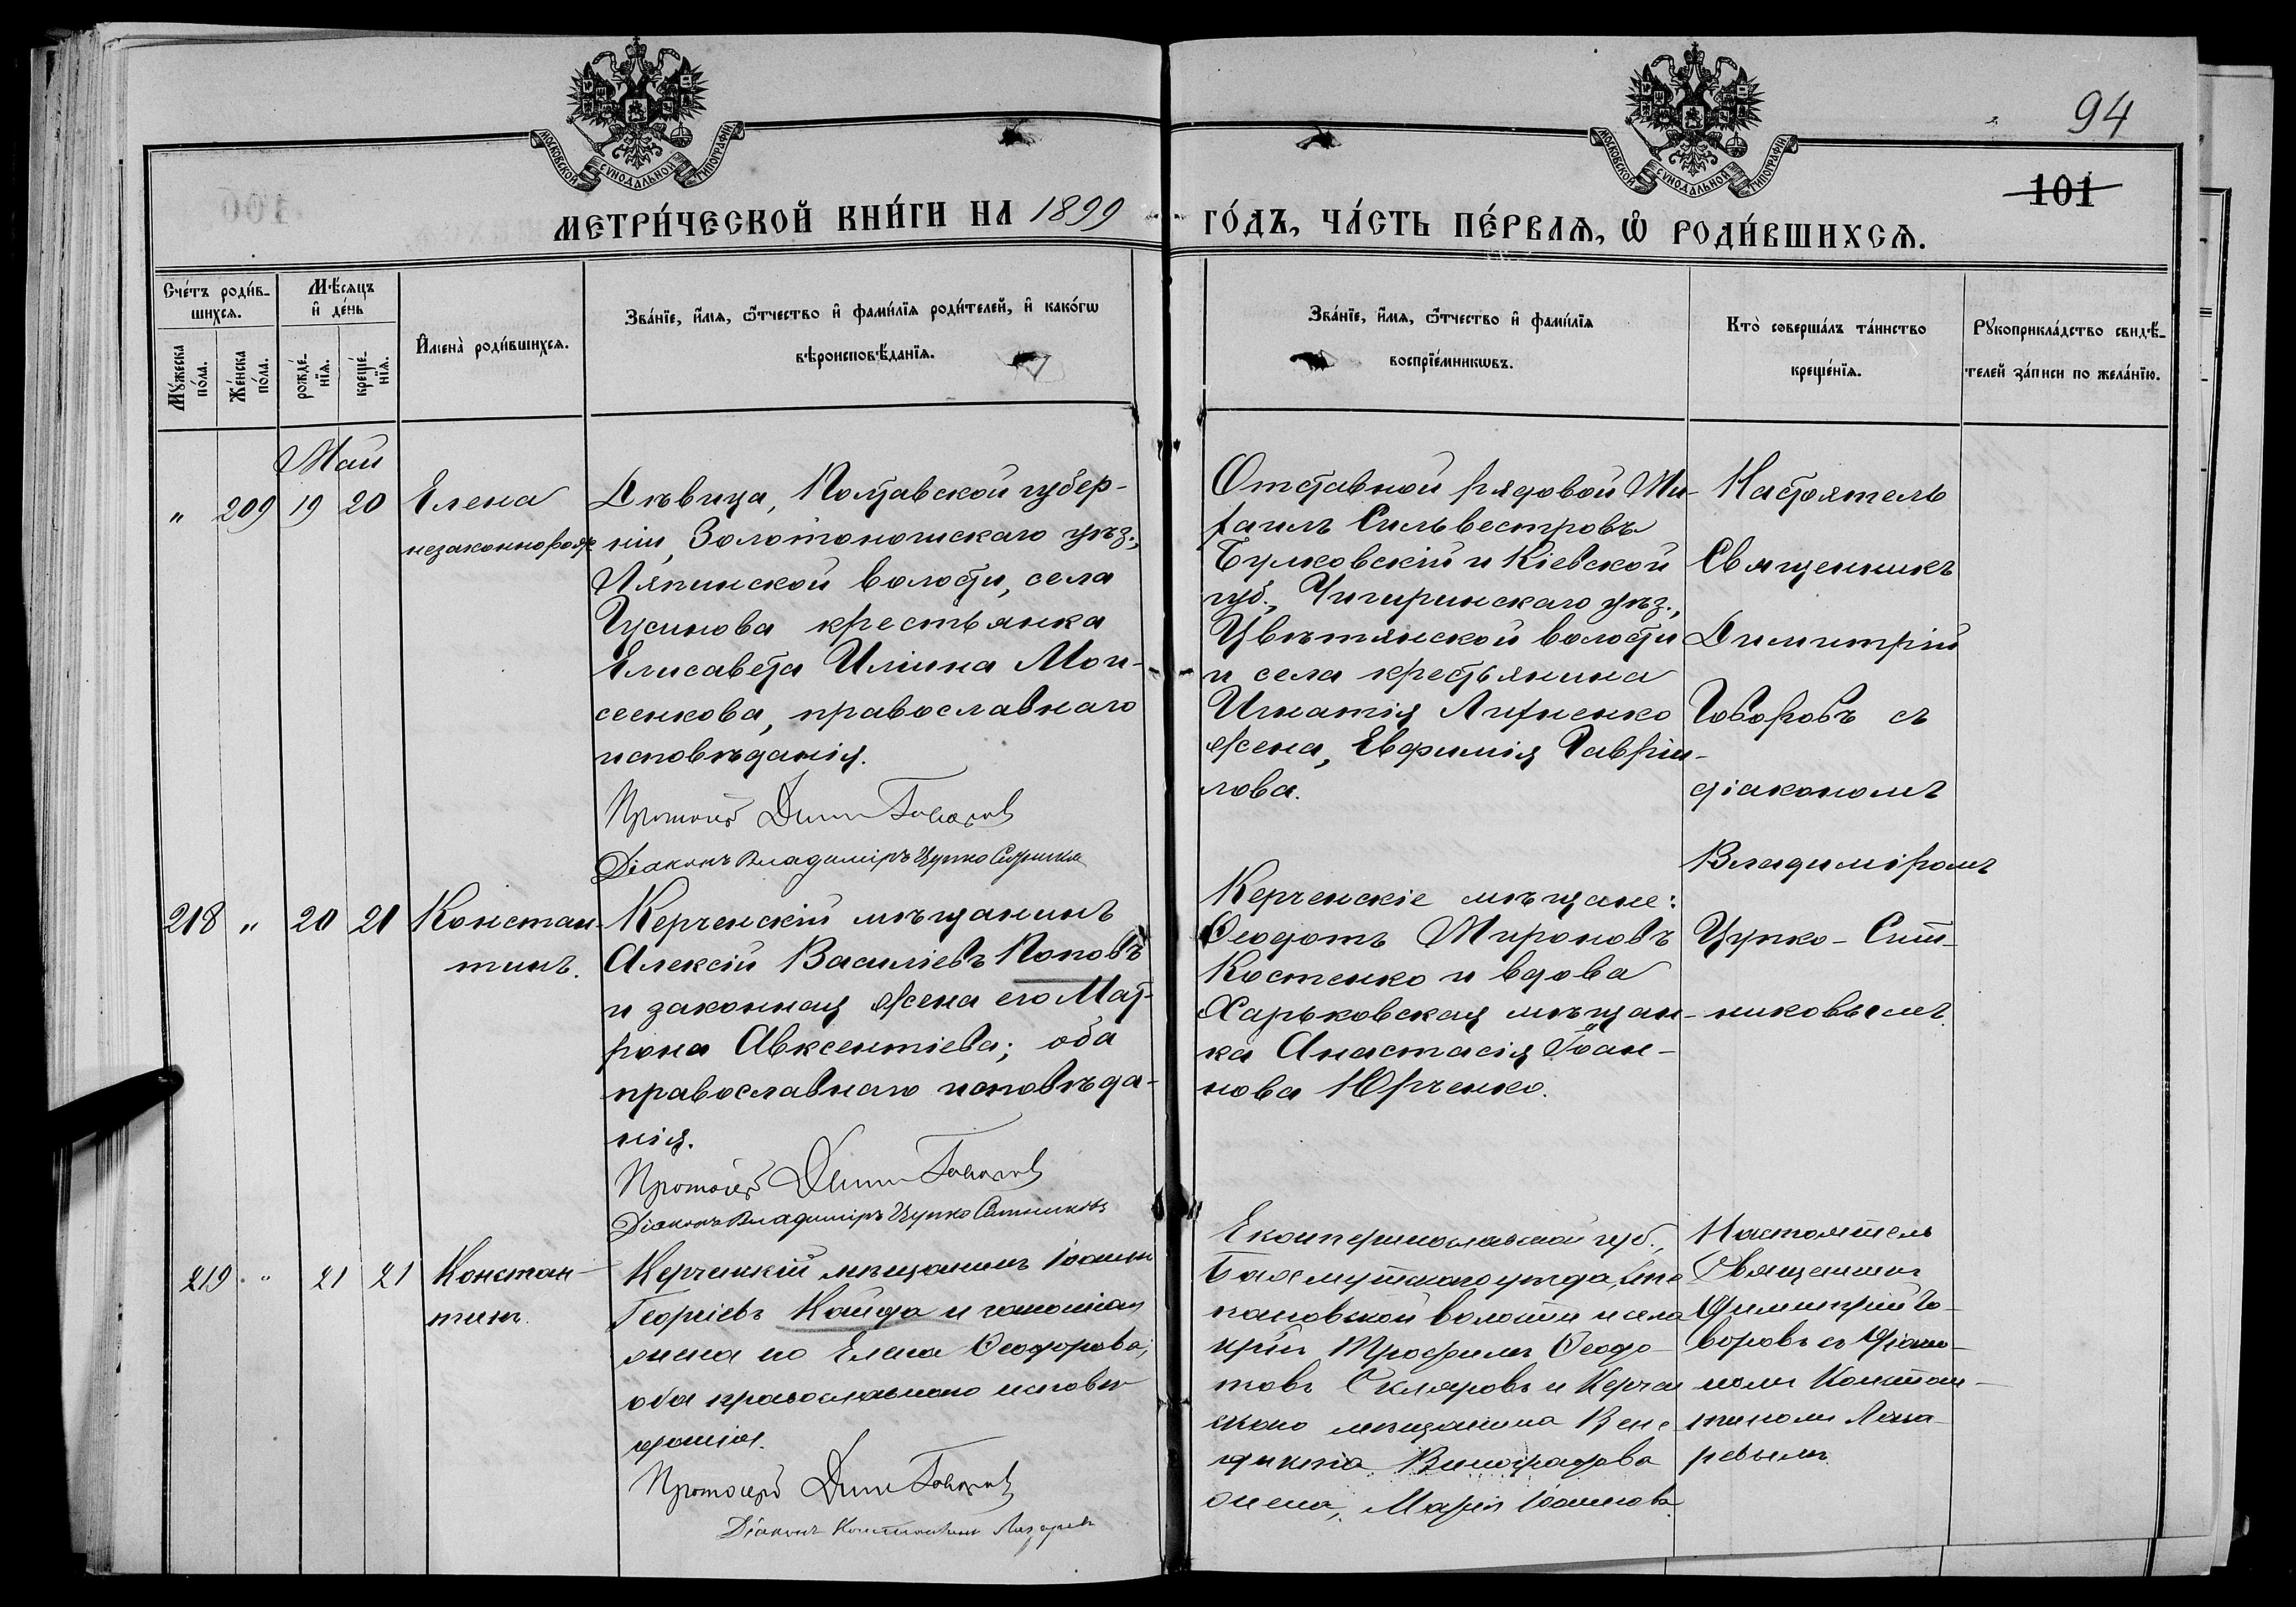 94
101
МОСКОВСКОЙ СѴНОДАЛЬНОЙ ТИПОГРАФІИ.
МОСКОВСКОЙ СѴНОДАЛЬНОЙ ТИПОГРАФІИ.
МЕТРИ́ЧЕСКОЙ КНИ́ГИ НА 1899 ГО́ДЪ, ЧА́СТЬ ПЕ́РВАѦ, Ѽ РОДИ́ВШИХСѦ.
Сче́тъ роди́в-
шихсѧ.
Мꙋ́жеска
по́ла.
Же́нска
по́ла.
Мѣ́сяцъ
и҆ де́нь
рожде́-
нїѧ.
креще́-
нїѧ.
И҆мена̀ роди́вшихсѧ.
Зва́нїе, и҆́мѧ, ѻ҆́тчество и҆ фами́лїѧ роди́телей, и҆ како́гѡ
вѣроисповѣ́данїѧ.
Зва́нїе, и҆́мѧ, ѻ҆́тчество и҆ фами́лїѧ
воспрїе́мникѡвъ.
Кто̀ соверша́лъ та́инство
креще́нїѧ.
Рꙋкоприкла́дство свидѣ́-
телей за́писи по жела́нїю.
Май
" 209 19 20 Елена
незаконнорож
Дѣвица, Полтавской губер-
ніи, Золотоношскаго уѣз.,
Ляпинской волости, села
Чусинова крестьянка
Елисавета Иліина Мои-
сеенкова, православнаго
исповѣданія.
Протоіер Дим Говоров
Діаконъ Владиміръ Цупко Ситников
Отставной рядовой Ми-
хаилъ Сильвестровъ
Булковскій и Кіевской
губ., Чигиринскаго уѣз.,
Цвѣтянской волости
и села крестьянина
Игнатія Лихненко
жена, Евфимія Гаврии-
лова.
Настоятель
Священникъ
Димитрій
Говоровъ съ
діакономъ
Владиміромъ
Цупко-Сит-
никовымъ.
218 " 20 21 Констан-
тинъ.
Керченскій мѣщанинъ
Алексій Василіевъ Поповъ
и законная жена его Мат-
рона Авксентіева; оба
православнаго исповѣда-
нія.
Протоіер Дим Говоров
Діаконъ Владиміръ Цупко Ситниковъ
Керченскіе мѣщане:
Ѳеодотъ Мироновъ
Костенко и вдова
Харьковская мѣщан-
ка Анастасія Іоан-
нова Юрченко.
219 " 21 21 Констан-
тинъ.
Керченскій мѣщанинъ Іоаннъ
Георгіевъ Кайда и законная
жена его Елена Ѳеодорова,
оба православнаго исповѣ-
данія.
Протоіер Дим Говоров
Діаконъ Константинъ Лазарев
Екатеринославской губ.,
Бахмутскаго уѣзда, Сте
пановской волости и села
Трофимъ Ѳеодо-
товъ Скляровъ и Керчен
скаго мѣщанина Вене
дикта Виноградова
жена, Марія Іоаннова.
Настоятель
Священникъ
Димитрій Го-
воровъ съ діако-
номъ Констан-
тиномъ Лаза-
ревымъ.